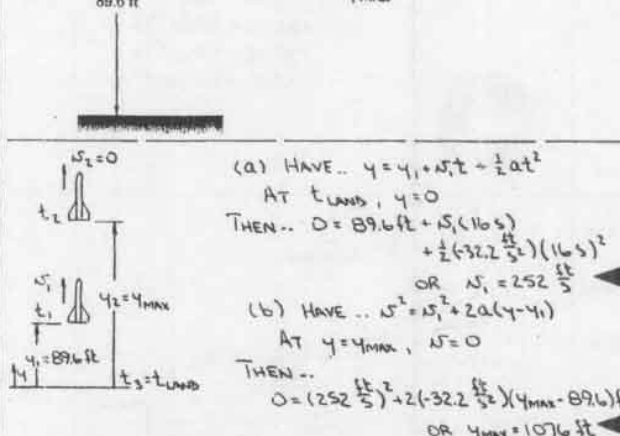 89.6 ft
v₂=0
t₂
v₁
t₁
y₂=yMAX
y₁=89.6 ft
y
t₃=tLAND
(a) HAVE.. y = y₁ + v₁t + ½at²
AT tLAND, y=0
THEN.. 0 = 89.6 ft + v₁(16 s)
+ ½(-32.2 ft/s²)(16 s)²
OR v₁ = 252 ft/s
(b) HAVE.. v² = v₁² + 2a(y-y₁)
AT y=yMAX, v=0
THEN..
0=(252 ft/s)²+2(-32.2 ft/s²)(yMAX-89.6)f
OR yMAX=1076 ft